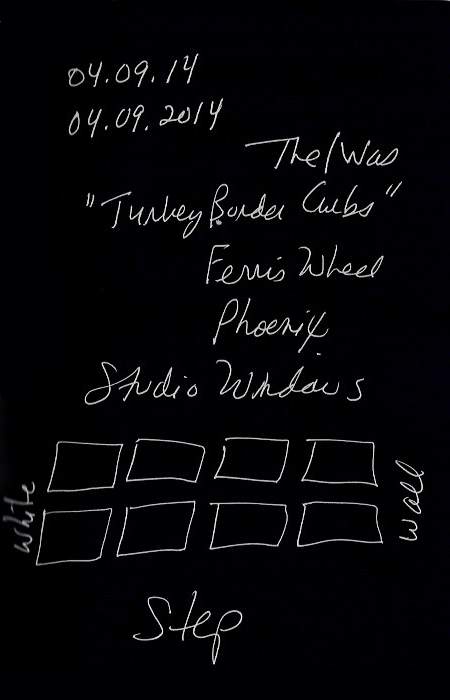 04.09.14
04.09.2014
The/Was
"Turkey Border Cubs"
Ferris Wheel
Phoenix
Studio Windows
White
Wall
Step